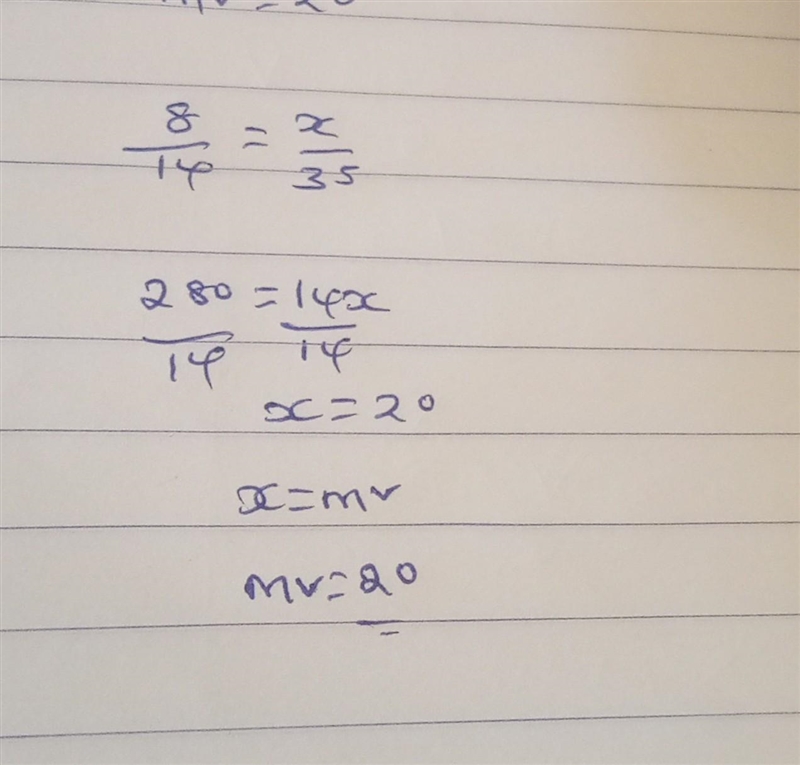 8/14 = x/35
280/14 = 14x/14
x = 20
x = mv
mv = 20